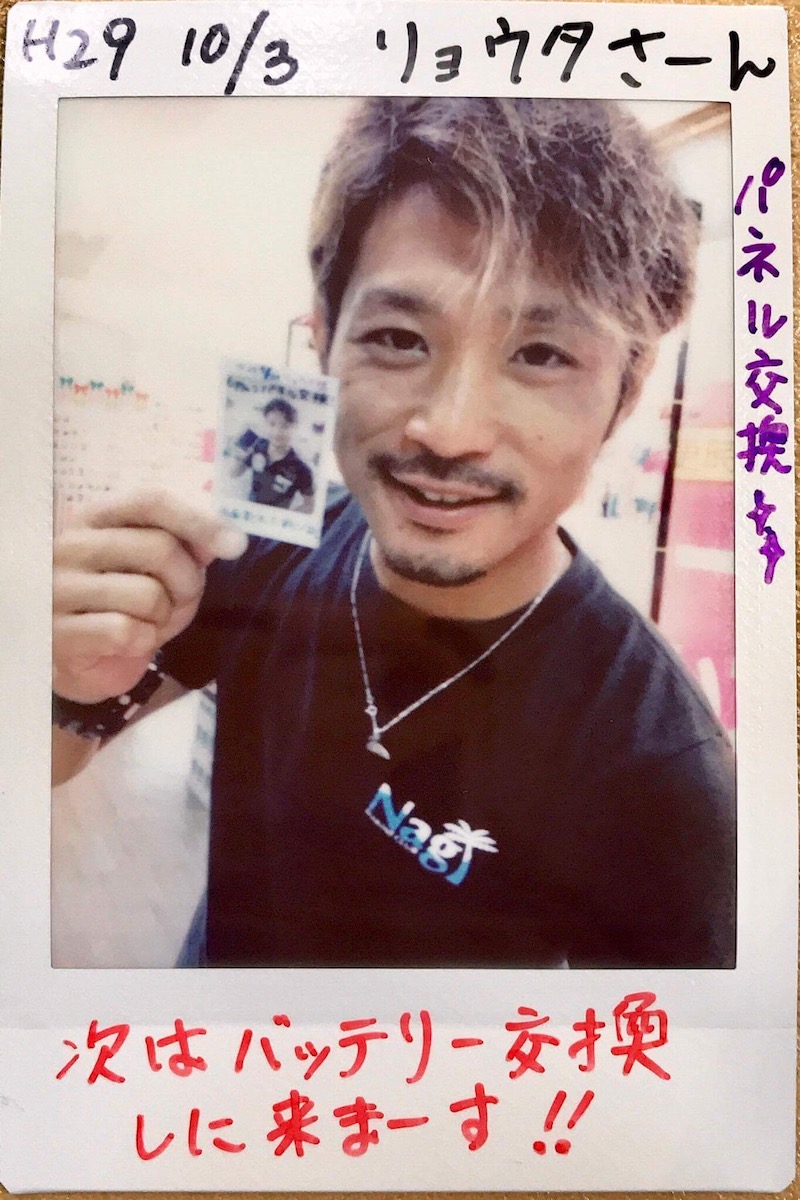 H29 10/3 リョウタさーん
パネル交換
Nagi
次はバッテリー交換
しに来まーす!!